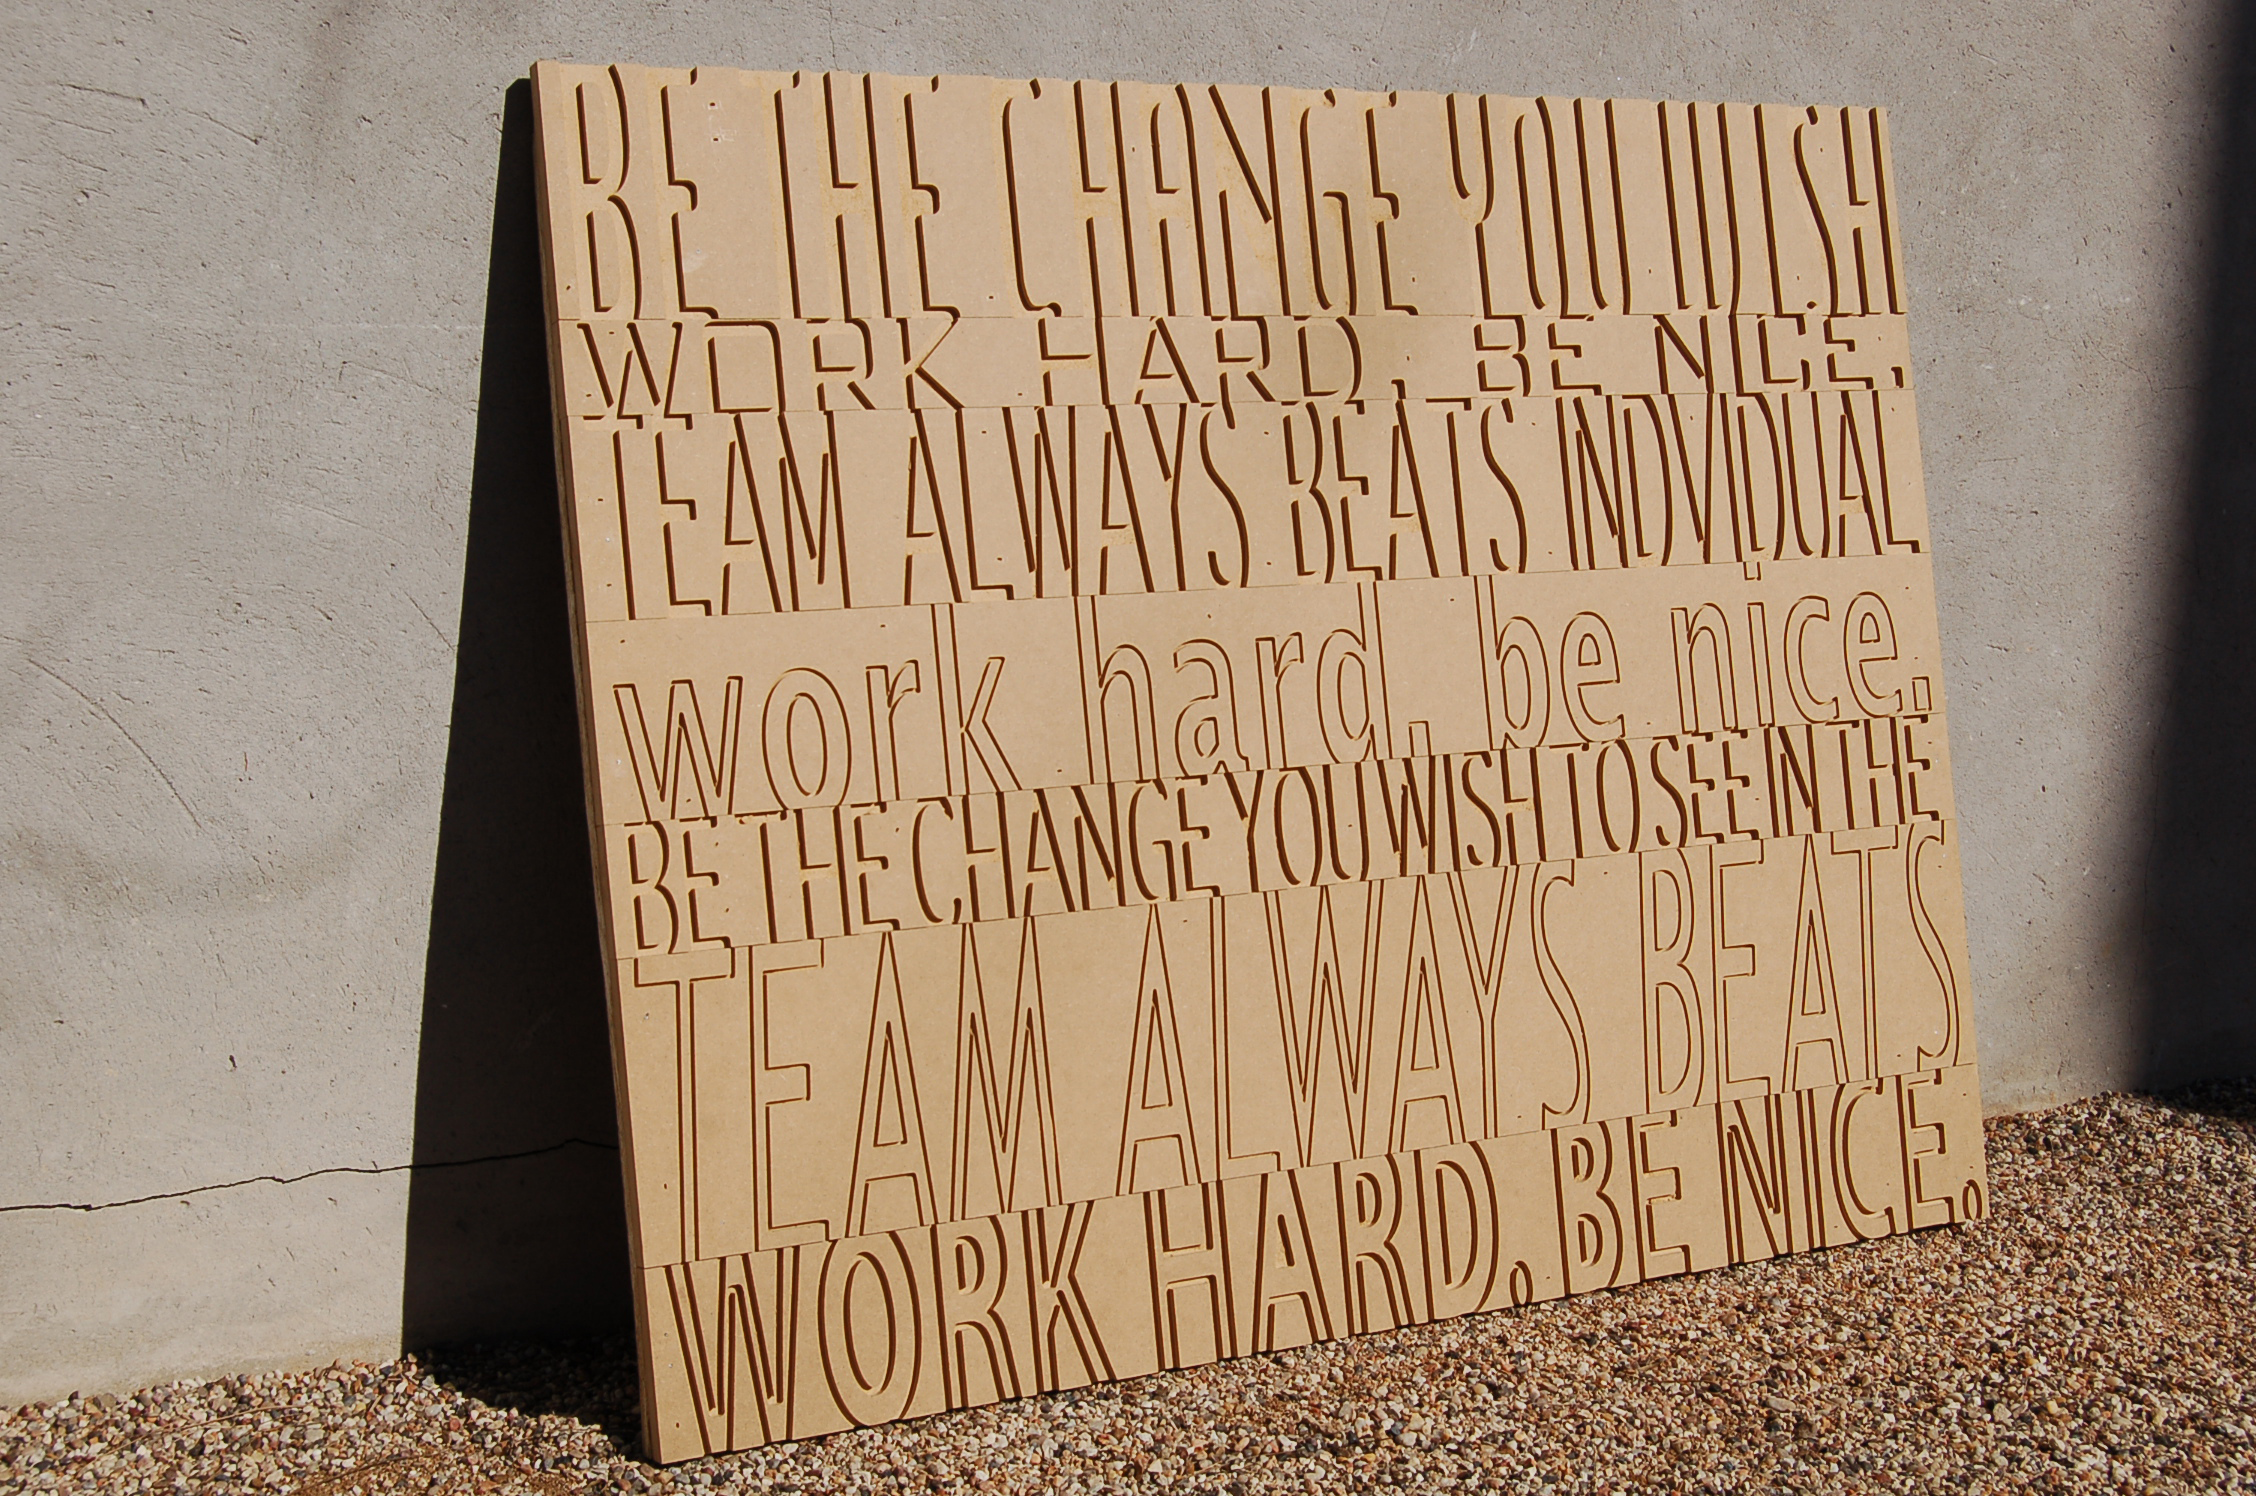 BE THE CHANGE YOU WISH
WORK HARD. BE NICE.
TEAM ALWAYS BEATS INDVIDUAL
work hard. be nice.
BE THE CHANGE YOU WISH TO SEE IN THE
TEAM ALWAYS BEATS
WORK HARD. BE NICE.